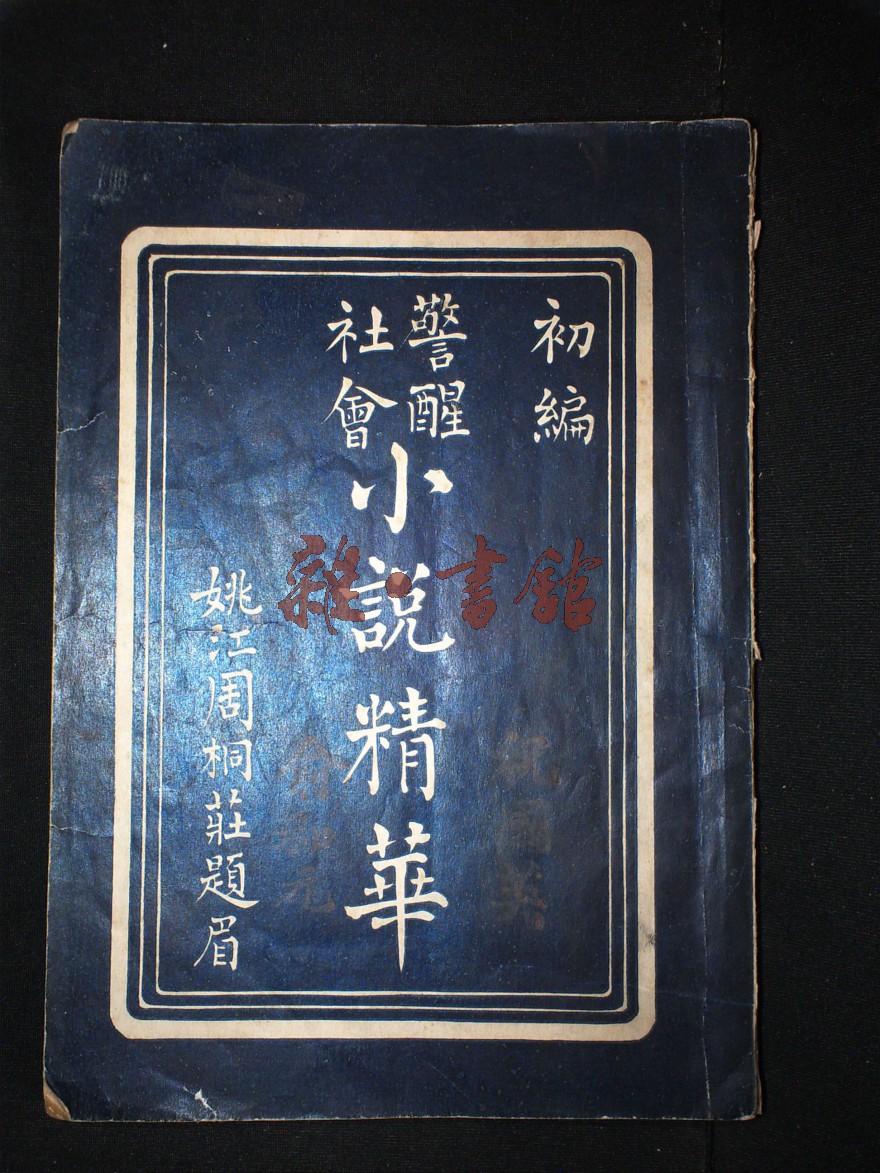 初編
警醒
社會
小說精華
姚江周桐莊題眉
雜·書館